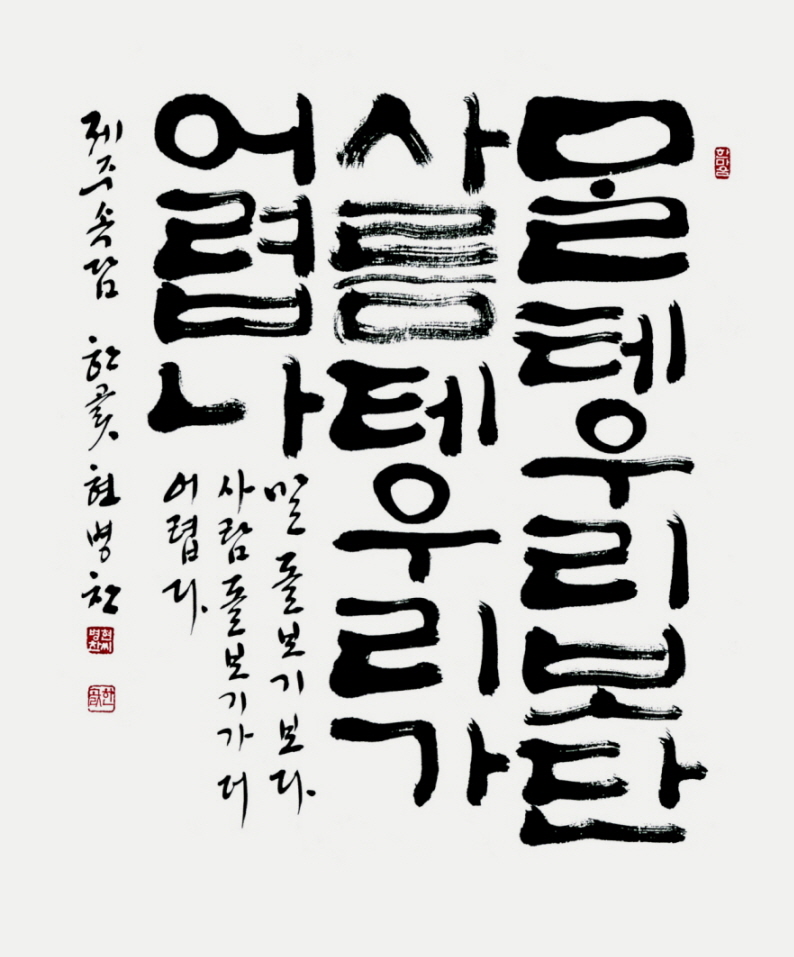 ᄆᆞᆯ테우리보탄
사름테우리가
어렵나
말 돌보기보다.
사람 돌보기가 더
어렵다.
제주속담 한곬 현병찬